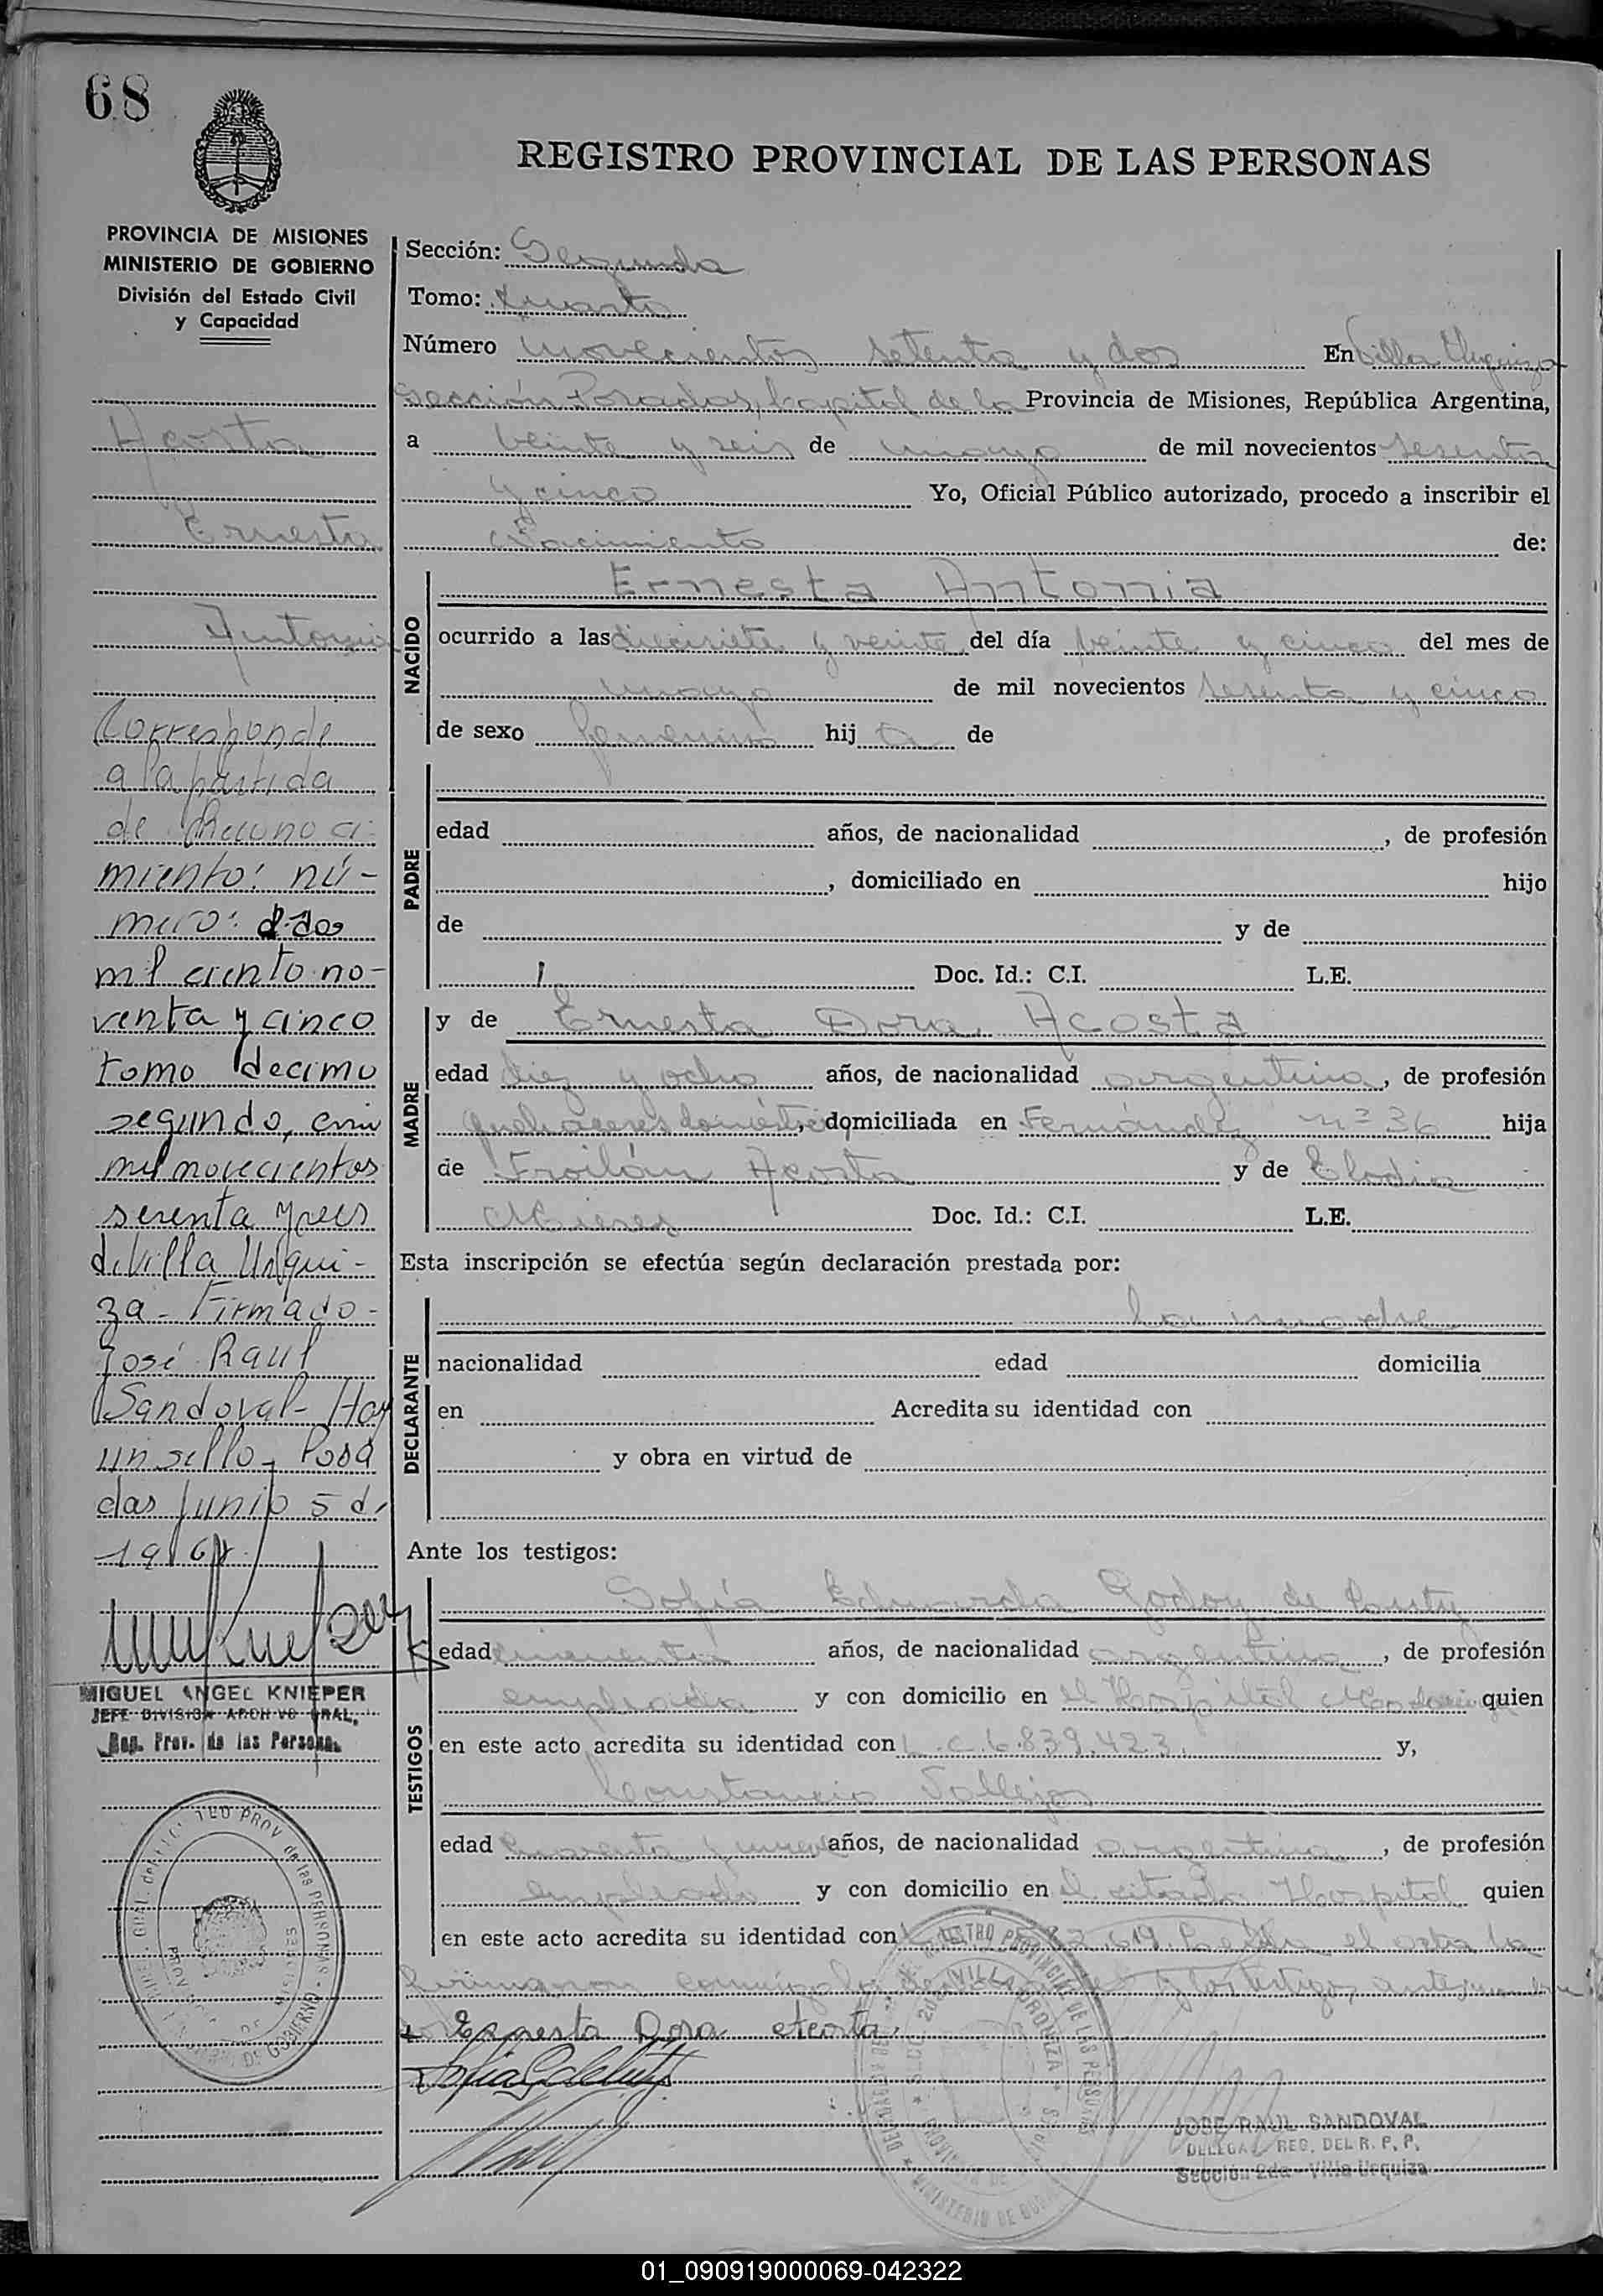 68
REGISTRO PROVINCIAL DE LAS PERSONAS
PROVINCIA DE MISIONES
MINISTERIO DE GOBIERNO
División del Estado Civil
y Capacidad
Acosta
Ernesta
Antonia
Corresponde
a la partida
de Reconoci
miento: nú-
mero: dos
mil ciento no-
venta y cinco
tomo decimo
segundo,
mil novecientos
sesenta y seis
de Villa Urqui-
za - Firmado -
José Raul
Sandoval - Hay
un sello - Posa
das Junio 5 de
MIGUEL ANGEL KNIEPER
JEFE DIVISION ARCHIVO GRAL,
Reg. Prov. de las Personas
Sección: Segunda
Tomo: Cuarto
Número novecientos setenta y dos En Villa Urquiza
Sección Posadas, Capital de la Provincia de Misiones, República Argentina,
a veinte y seis de mayo de mil novecientos sesenta
y cinco Yo, Oficial Público autorizado, procedo a inscribir el
Nacimiento de:
NACIDO
Ernesta Antonia
ocurrido a las diecisiete y veinte del día veinte y cinco del mes de
mayo de mil novecientos sesenta y cinco
de sexo femenino hij a de
PADRE
edad años, de nacionalidad , de profesión
, domiciliado en hijo
de y de
Doc. Id.: C.I. L.E.
MADRE
y de Ernesta Dora Acosta
edad diez y ocho años, de nacionalidad argentina, de profesión
quehaceres domésticos, domiciliada en Fernández nº 36 hija
de Froilán Acosta y de Elodia
Mieres Doc. Id.: C.I. L.E.
Esta inscripción se efectúa según declaración prestada por:
DECLARANTE
la madre
nacionalidad edad domicilia
en Acredita su identidad con
y obra en virtud de
Ante los testigos:
TESTIGOS
Sofía Eduarda Godoy de
edad cincuenta años, de nacionalidad argentina, de profesión
empleada y con domicilio en el Hospital quien
en este acto acredita su identidad con L.C.6.839.423. y,
Constancio Vallejos
edad cuarenta y nueve años, de nacionalidad argentina, de profesión
empleado y con domicilio en el citado Hospital quien
en este acto acredita su identidad con el acta la
firmaron conmigo la y los testigos
Ernesta Dora Acosta
JOSE RAUL SANDOVAL
DELEGA REG. DEL R. P. P.
Sección 2da - Villa Urquiza
01_090919000069-042322